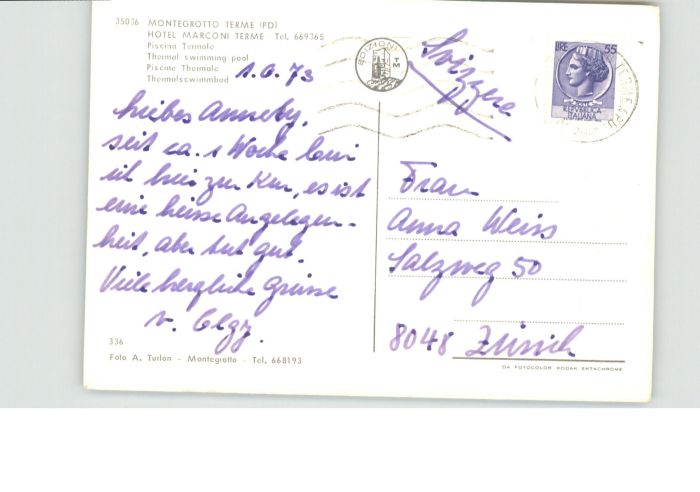 35036 MONTEGROTTO TERME (PD)
HOTEL MARCONI TERME - Tel. 669365
Piscina Termale
Thermal swimming pool
Piscine Thermale
Thermalschwimmbad
1.6.73
EDIZIONI
TM
Svizzera
LIRE 55
REPUBBLICA
ITALIANA
Liebes Annely,
seit ca. 1 Woche bin
ich hier zur Kur, es ist
eine heisse Angelegen-
heit, aber tut gut.
Viele herzliche Grüsse
v.
Frau
Anna Weiss
Salzweg 50
8048 Zürich
336
Foto A. Turlon - Montegrotto - Tel. 668193
DA FOTOCOLOR KODAK EKTACHROME